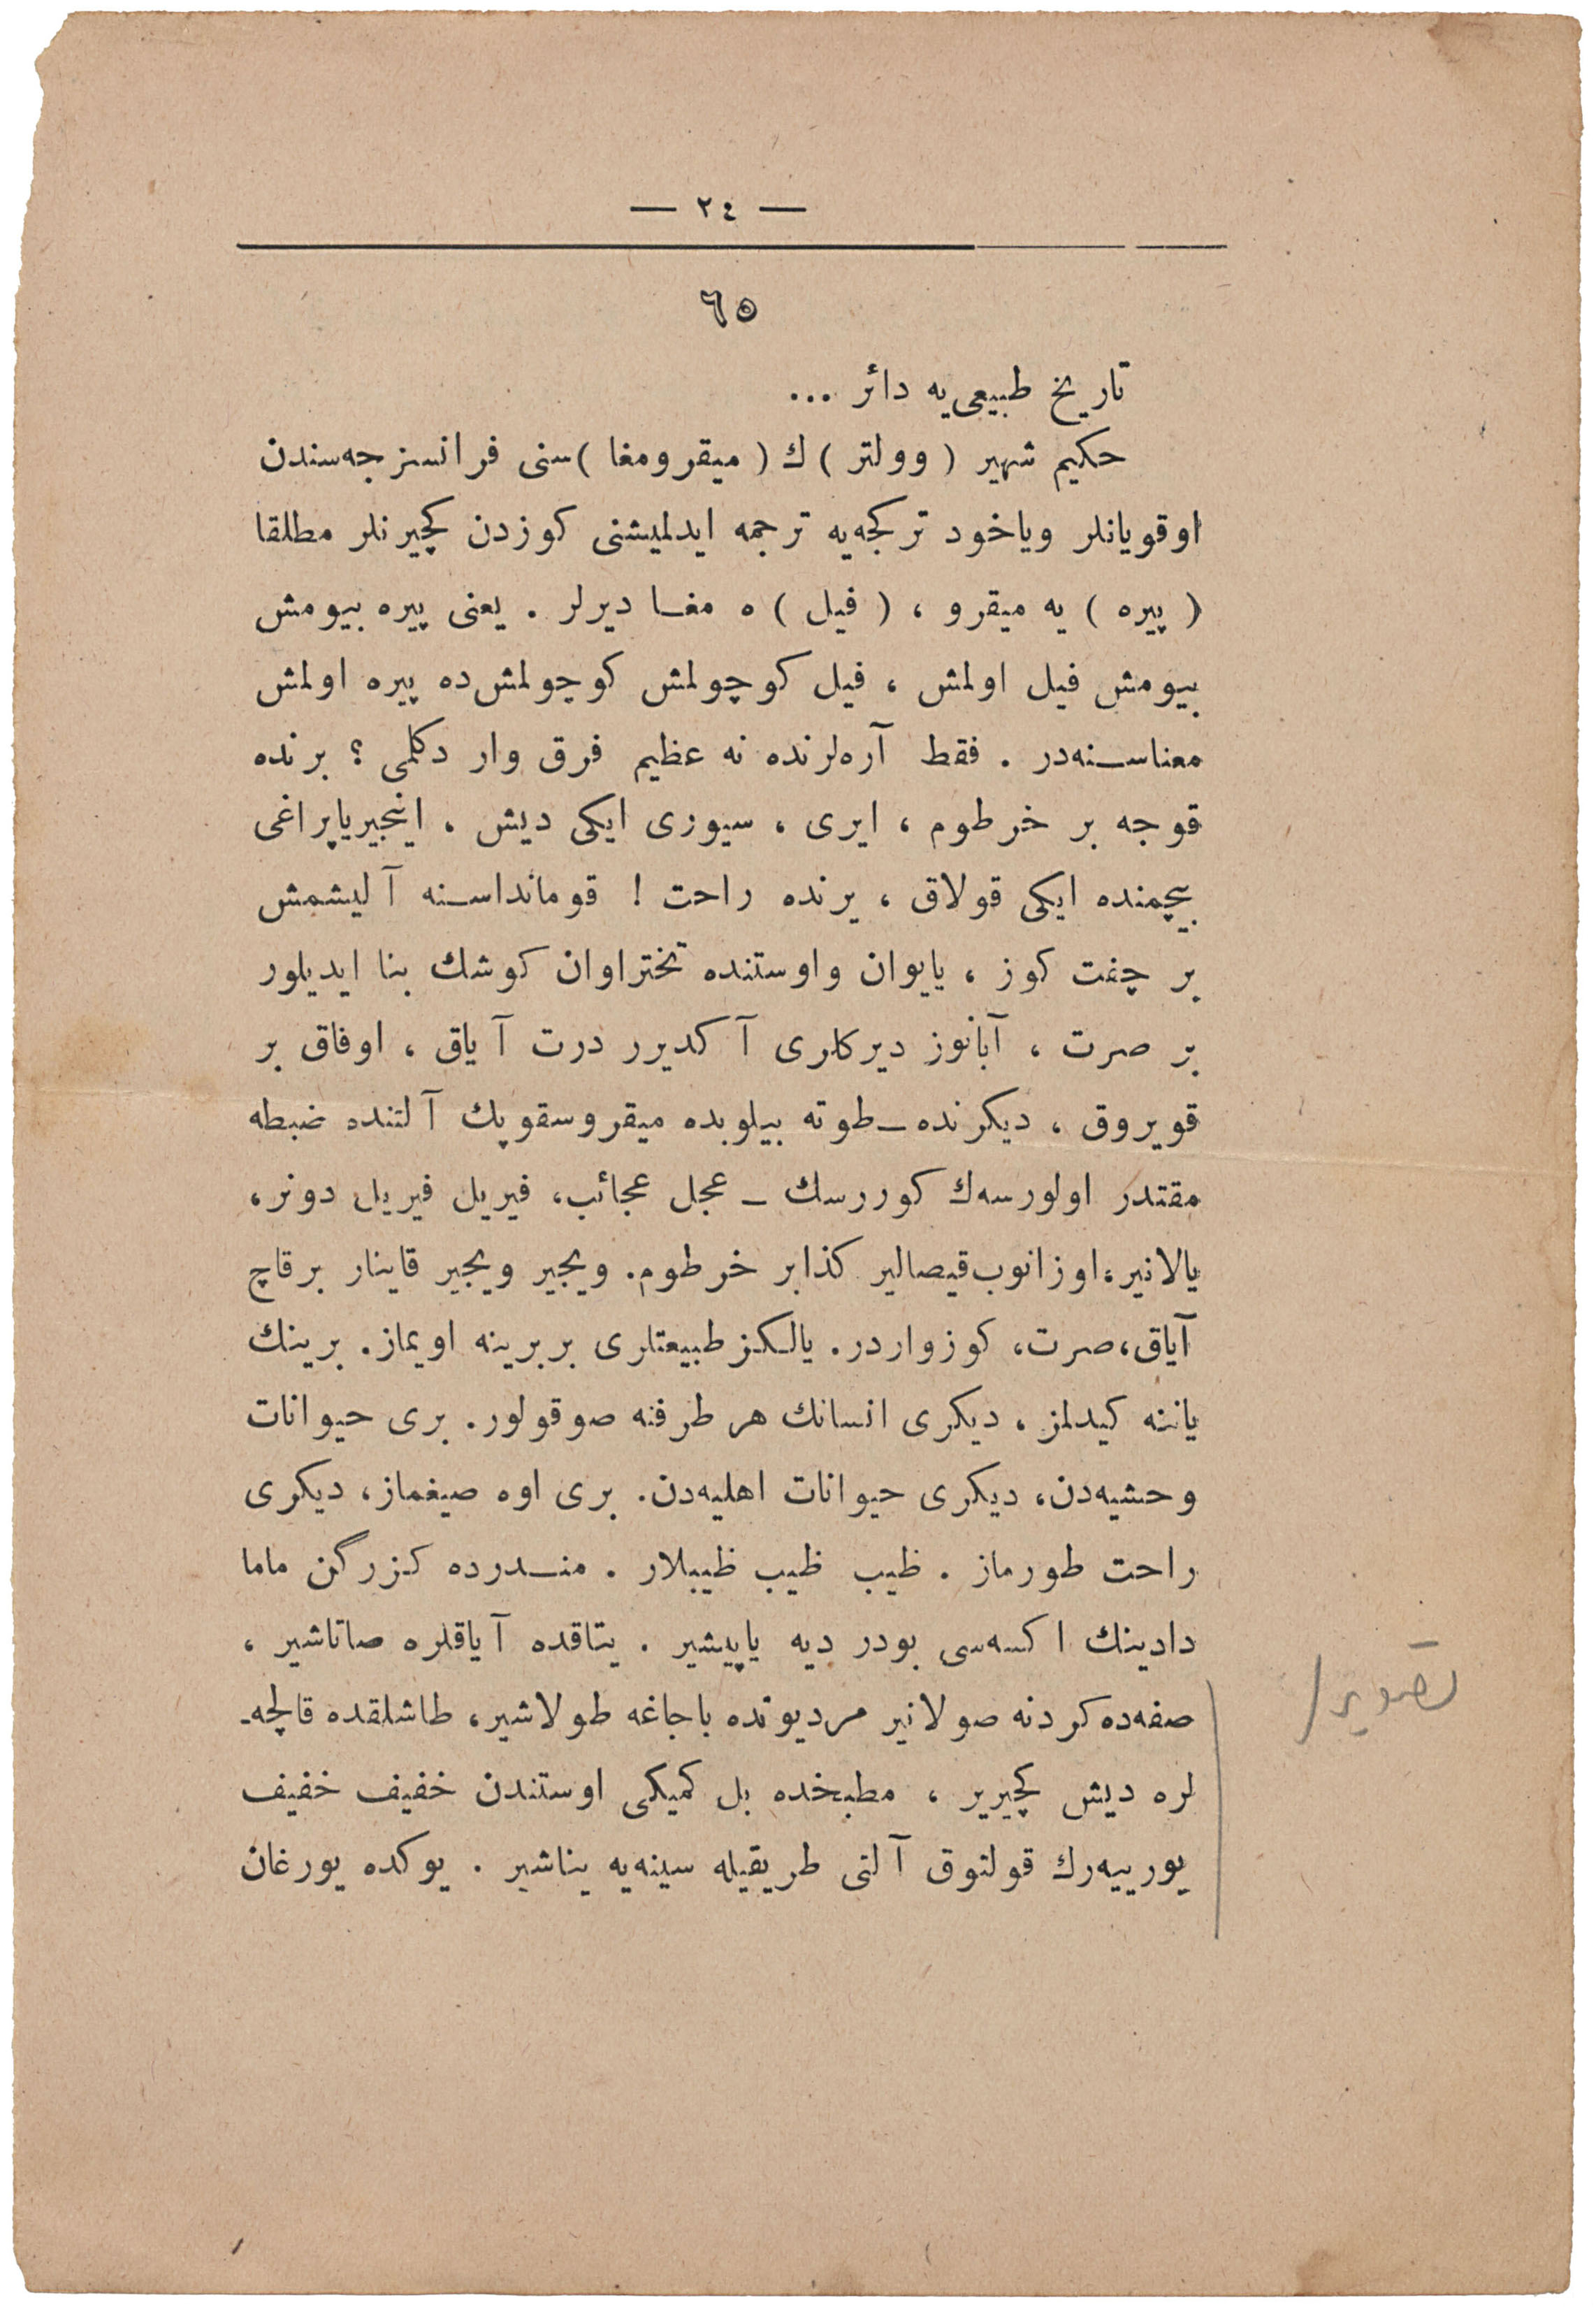 — ٢٤ —
٦٥
تاریخ طبیعی‌یه دائر ...
حكیم شهیر ( وولتر ) ك ( میقرومغا ) سنی فرانسزجه‌سندن
اوقویانلر ویاخود تركجه‌یه ترجمه ایدلمیشنی كوزدن كچیرنلر مطلقا
( پیره ) یه میقرو ، ( فیل ) ه مغا دیرلر . یعنی پیره بیومش
بیومش فیل اولمش ، فیل كوچولمش كوچولمش‌ده پیره اولمش
معناسنه‌در . فقط آره‌لرنده نه عظیم فرق وار دكلمی ؟ برنده
قوجه بر خرطوم ، ایری ، سیوری ایكی دیش ، انجیریاپراغی
بیچمنده ایكی قولاق ، یرنده راحت ! قومانداسنه آلیشمش
بر چفت كوز ، یایوان واوستنده تختراوان كوشك بنا ایدیلور
بر صرت ، آبانوز دیركلری آكدیرر درت آیاق ، اوفاق بر
قویروق ، دیكرنده ـ طوته بیلوبده میقروسقوپك آلتنده ضبطه
مقتدر اولورسه‌ك كوررسك ـ عجل عجائب، فیریل فیریل دونر،
یالانیر، اوزانوب قیصالیر كذا بر خرطوم. ویجیر ویجیر قاینار برقاچ
آیاق، صرت، كوزواردر. یالكز طبیعتلری بربرینه اویماز. برینك
یاننه كیدلمز ، دیكری انسانك هر طرفنه صوقولور. بری حیوانات
وحشیه‌دن، دیكری حیوانات اهلیه‌دن. بری اوه صیغماز، دیكری
راحت طورماز . ظیب ظیب ظیبلار . مندرده كزرگن ماما
دادینك اكسه‌سی بودر دیه یاپیشیر . یتاقده آیاقلره صاتاشیر ،
صفه‌ده كردنه صولانیر مردیونده باجاغه طولاشیر، طاشلقده قالچه‌ـ
لره دیش كچیریر ، مطبخده بل كمیكی اوستندن خفیف خفیف
یورییه‌رك قولتوق آلتی طریقیله سینه‌یه یناشیر . یوكده یورغان
تصویر /